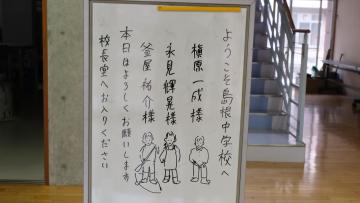 ようこそ島根中学校へ
槇原一成様
永見輝晃様
釜屋祐介様
本日はよろしくお願いします
校長室へお入りください